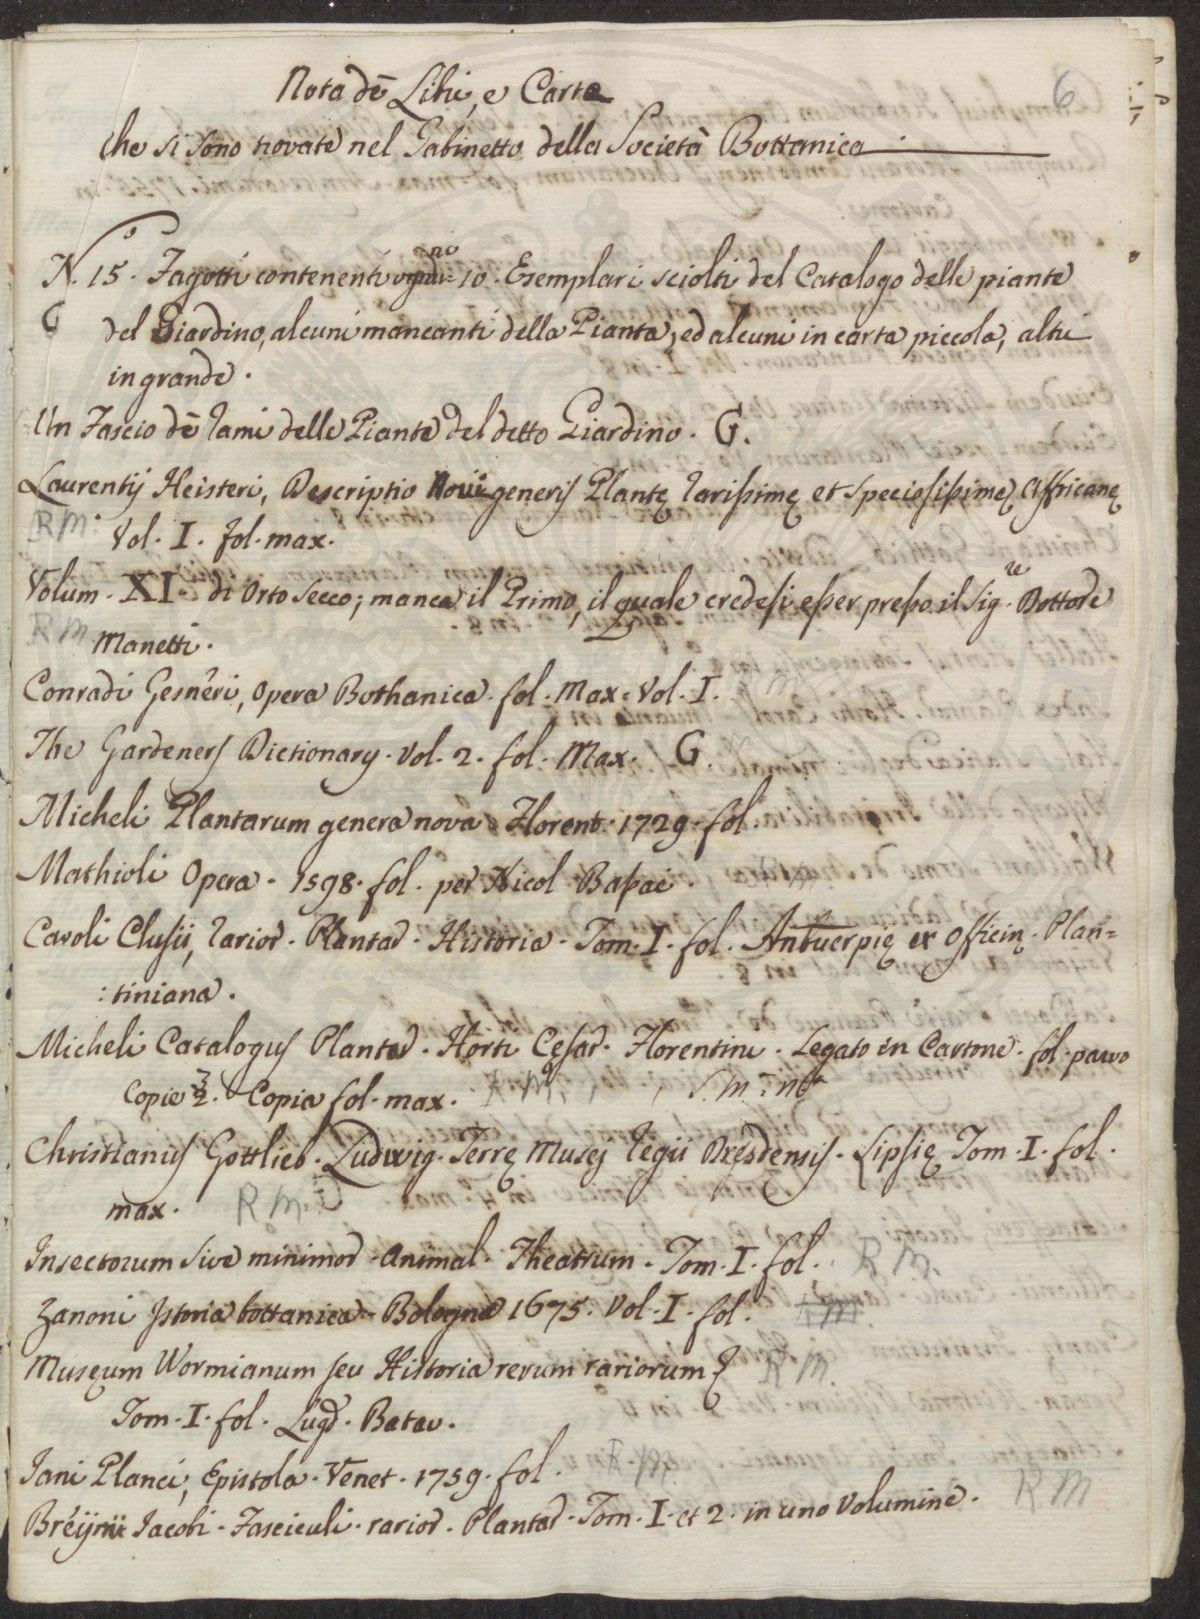 6
Nota dē Libri, e Carte
che si sono trovate nel Gabinetto della Società Bottanica
N.º 15. Fagotti contenenti ogn'uno 10. Esemplari sciolti del Catalogo delle piante
G del Giardino, alcuni mancanti della Pianta, ed alcuni in carta piccola, altri
in grande.
Un Fascio dē rami delle Piante del detto Giardino. G.
Laurentij Heisteri, Descriptio Novi generis Plantę rarissimę et speciosissimę Affricanę
R M. Vol. I. fol. max.
Volum. XI di Orto Secco; manca il Primo, il quale credesi esser presso il Sig.re Dottore
R M Manetti.
Conradi Gesneri, Opera Bothanica. fol. Max. Vol. I.
The Gardeners Dictionary. Vol. 2. fol. Max. G.
Micheli Plantarum genera nova Florent. 1729. fol.
Mathioli Opera. 1598. fol. per Nicol Bassaei.
Caroli Clusii, rarior. Plantar. Historia. Tom. I. fol. Antuerpię ex Officin. Plan=
:tiniana.
Micheli Catalogus Plantar. Horti Cesar. Florentini. Legato in Cartone. fol. parvo
Copie 2. Copia fol. max. R. M.
Christianus Gottlieb. Ludwig. Terrę Musej Regii Dresdensis. Lipsię Tom. I. fol.
max. R M.
Insectorum sive minimor. Animal. Theatrum. Tom. I. fol. R M.
Zanoni Istoria bottanica. Bologna 1675. Vol. I. fol. R M.
Museum Wormianum seu Historia rerum rariorum R M.
Tom. I. fol. Lugd. Batav.
Jani Planci, Epistola. Venet. 1759. fol. R M.
Breijnii Jacobi. Fasciculi. rarior. Plantar. Tom. I. et 2. in uno Volumine. R M